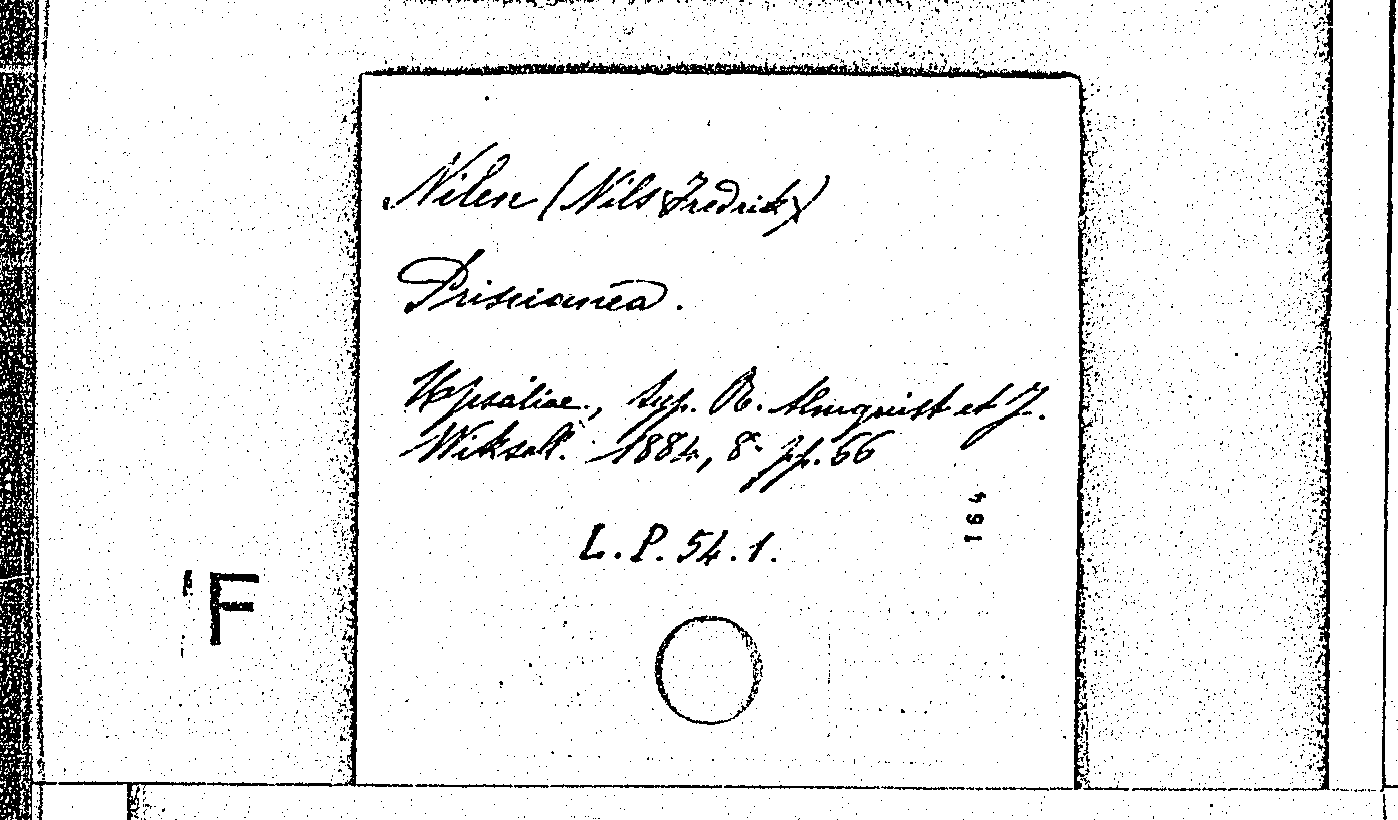 Nilen (Nils Fredrik)
Priscianea.
Upsaliae., typ. R. Almquist et J.
Wiksell. 1884, 8º pp. 66
L. P. 54. 1.
164
F